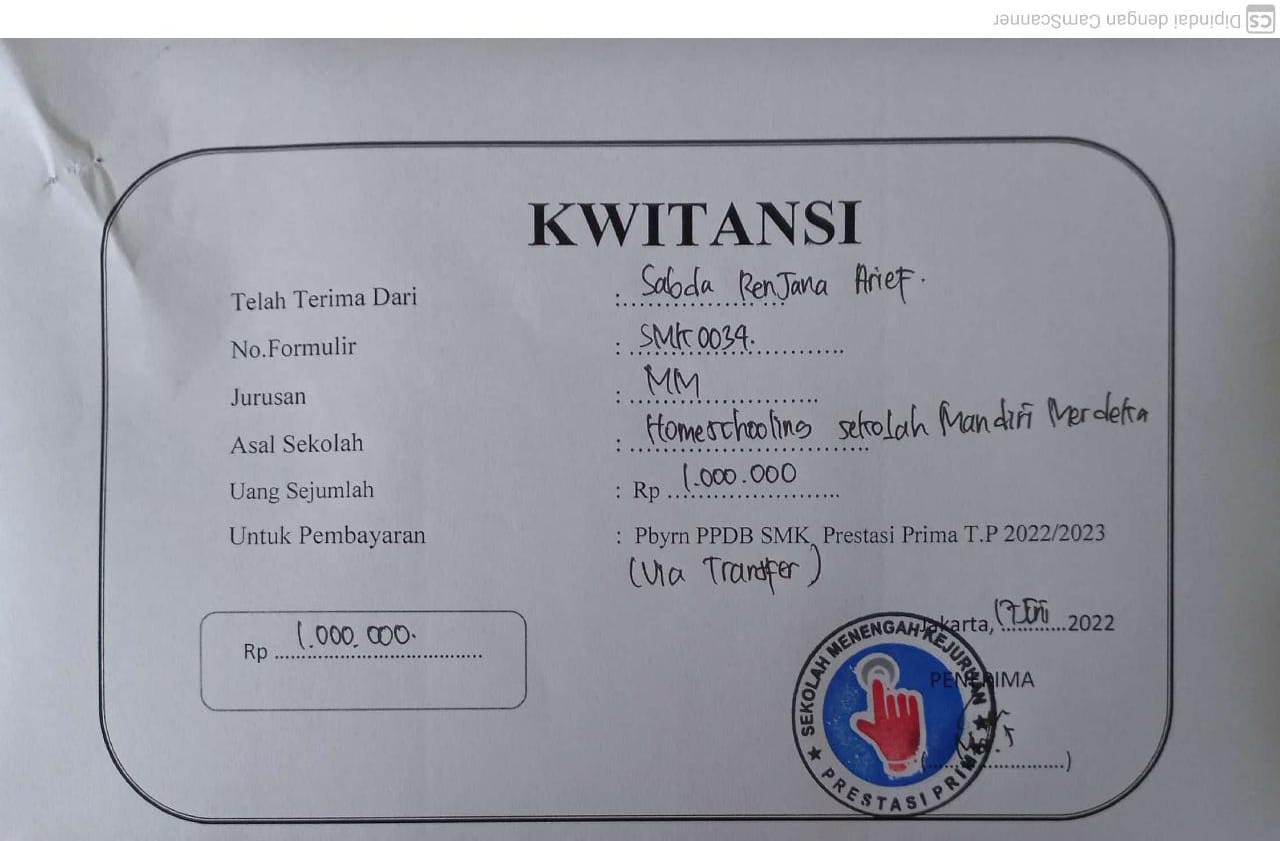 Dipindai dengan CamScanner
CS
KWITANSI
Telah Terima Dari : Sabda RenJana Arief.
No.Formulir : SMK 0034.
Jurusan : MM
Asal Sekolah : Homeschooling sekolah Mandiri Merdeka
Uang Sejumlah : Rp 1.000.000
Untuk Pembayaran : Pbyrn PPDB SMK Prestasi Prima T.P 2022/2023
(Via Transfer)
Jakarta, 2022
Rp 1.000.000.
PENERIMA
SEKOLAH MENENGAH KEJURUAN
PRESTASI PRIMA